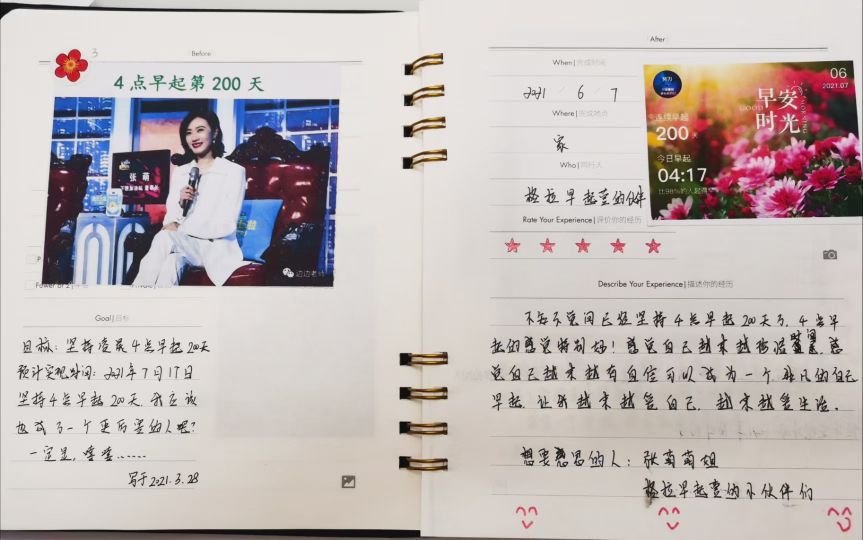 3
Before
4点早起第 200 天
张 萌
边边老师
Goal|目标
目标：坚持清晨4点早起200天
预计实现时间：2021年7月17日
坚持4点早起200天，我应该
也成了一个更厉害的人吧？
一定是，嘻嘻……
写于2021.3.28
After
When|完成时间
2021 / 6 / 7
Where|完成地点
家
Who|同行人
格拉早起营的伙伴
Rate Your Experience|评价你的经历
努力
早安
时光
GOOD
06
2021.07
连续早起
200 天
今日早起
04:17
比98%的人起得早
Describe Your Experience|描述你的经历
不知不觉间已经坚持4点早起200天了，4点早
起的感觉特别好！感觉自己越来越 时间，感
觉自己越来越有自信可以成为一个 非凡的自己
早起，让我越来越爱自己，越来越爱生活。
想要感恩的人：张萌萌姐
格拉早起营的小伙伴们